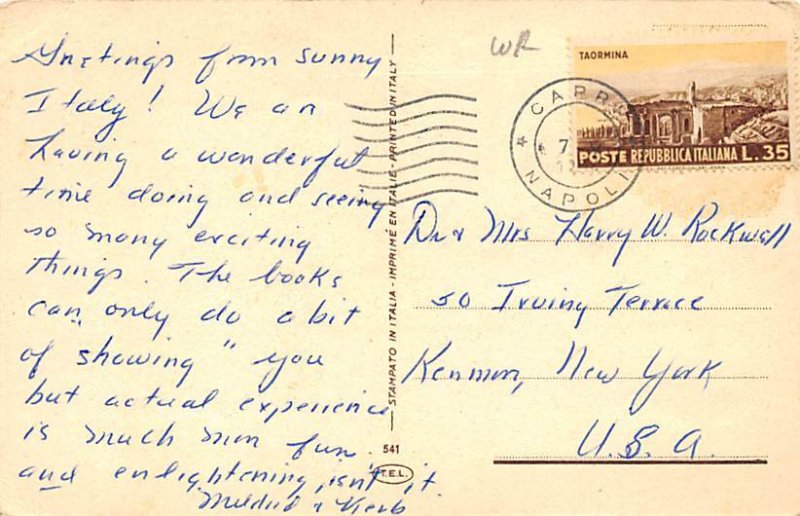 Greetings from sunny
Italy! We are
having a wonderful
time doing and seeing
so many exciting
things. The books
can only do a bit
of showing" you
but actual experience
is much more fun
and enlightening, isn't it.
Mildred & Herb
STAMPATO IN ITALIA - IMPRIMÉ EN ITALIE - PRINTED IN ITALY
541
T.E.L.
WR
TAORMINA
POSTE REPUBBLICA ITALIANA L.35
* CAPRI
* 7
NAPOLI
Dr & Mrs Harry W. Rockwell
50 Irving Terrace
Kenmore, New York
U.S.A.